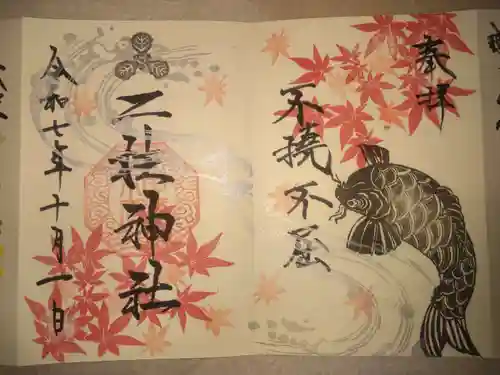 奉拝
不撓不屈
二社神社
令和七年十月一日